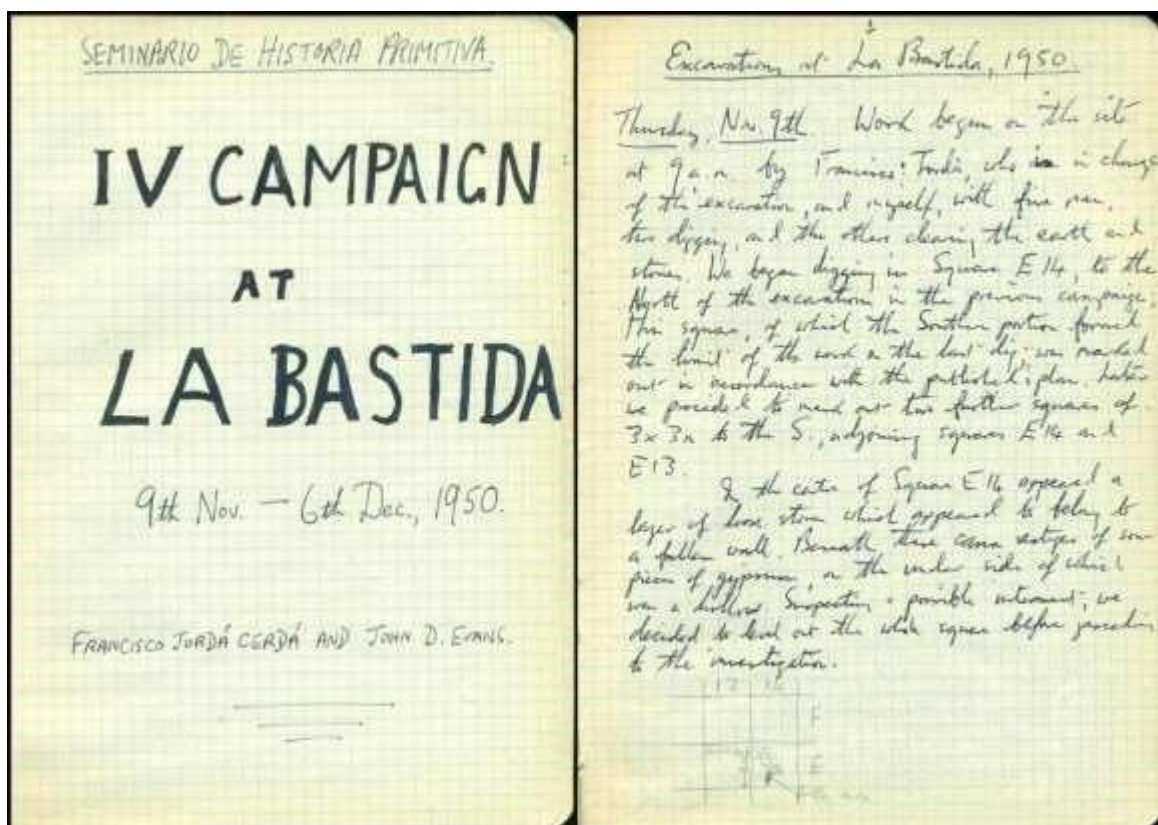 SEMINARIO DE HISTORIA PRIMITIVA.
IV CAMPAIGN
AT
LA BASTIDA
9th Nov. — 6th Dec., 1950.
FRANCISCO JORDÁ CERDÁ AND JOHN D. EVANS.
1
Excavations at La Bastida, 1950.
Thursday, Nov. 9th. Work began on the site
at 9 a.m. by Francisco Jordá, who is in charge
of the excavation, and myself, with five men,
two digging, and the others clearing the earth and
stones. We began digging in Square E 14, to the
North of the excavations in the previous campaign;
this square, of which the Southern portion formed
the limit of the work in the last dig, was marked
out in accordance with the published plan. Later
we proceeded to mark out two further squares of
3 x 3 m to the S., adjoining squares E 14 and
E 13.
In the center of Square E 14 appeared a
layer of loose stones which appeared to belong to
a fallen wall. Beneath these came vestiges of some
pieces of gypsum, on the under side of which
was a hollow. Suspecting a possible interment, we
decided to level out the whole square before proceeding
to the investigation.
13 14
F
E